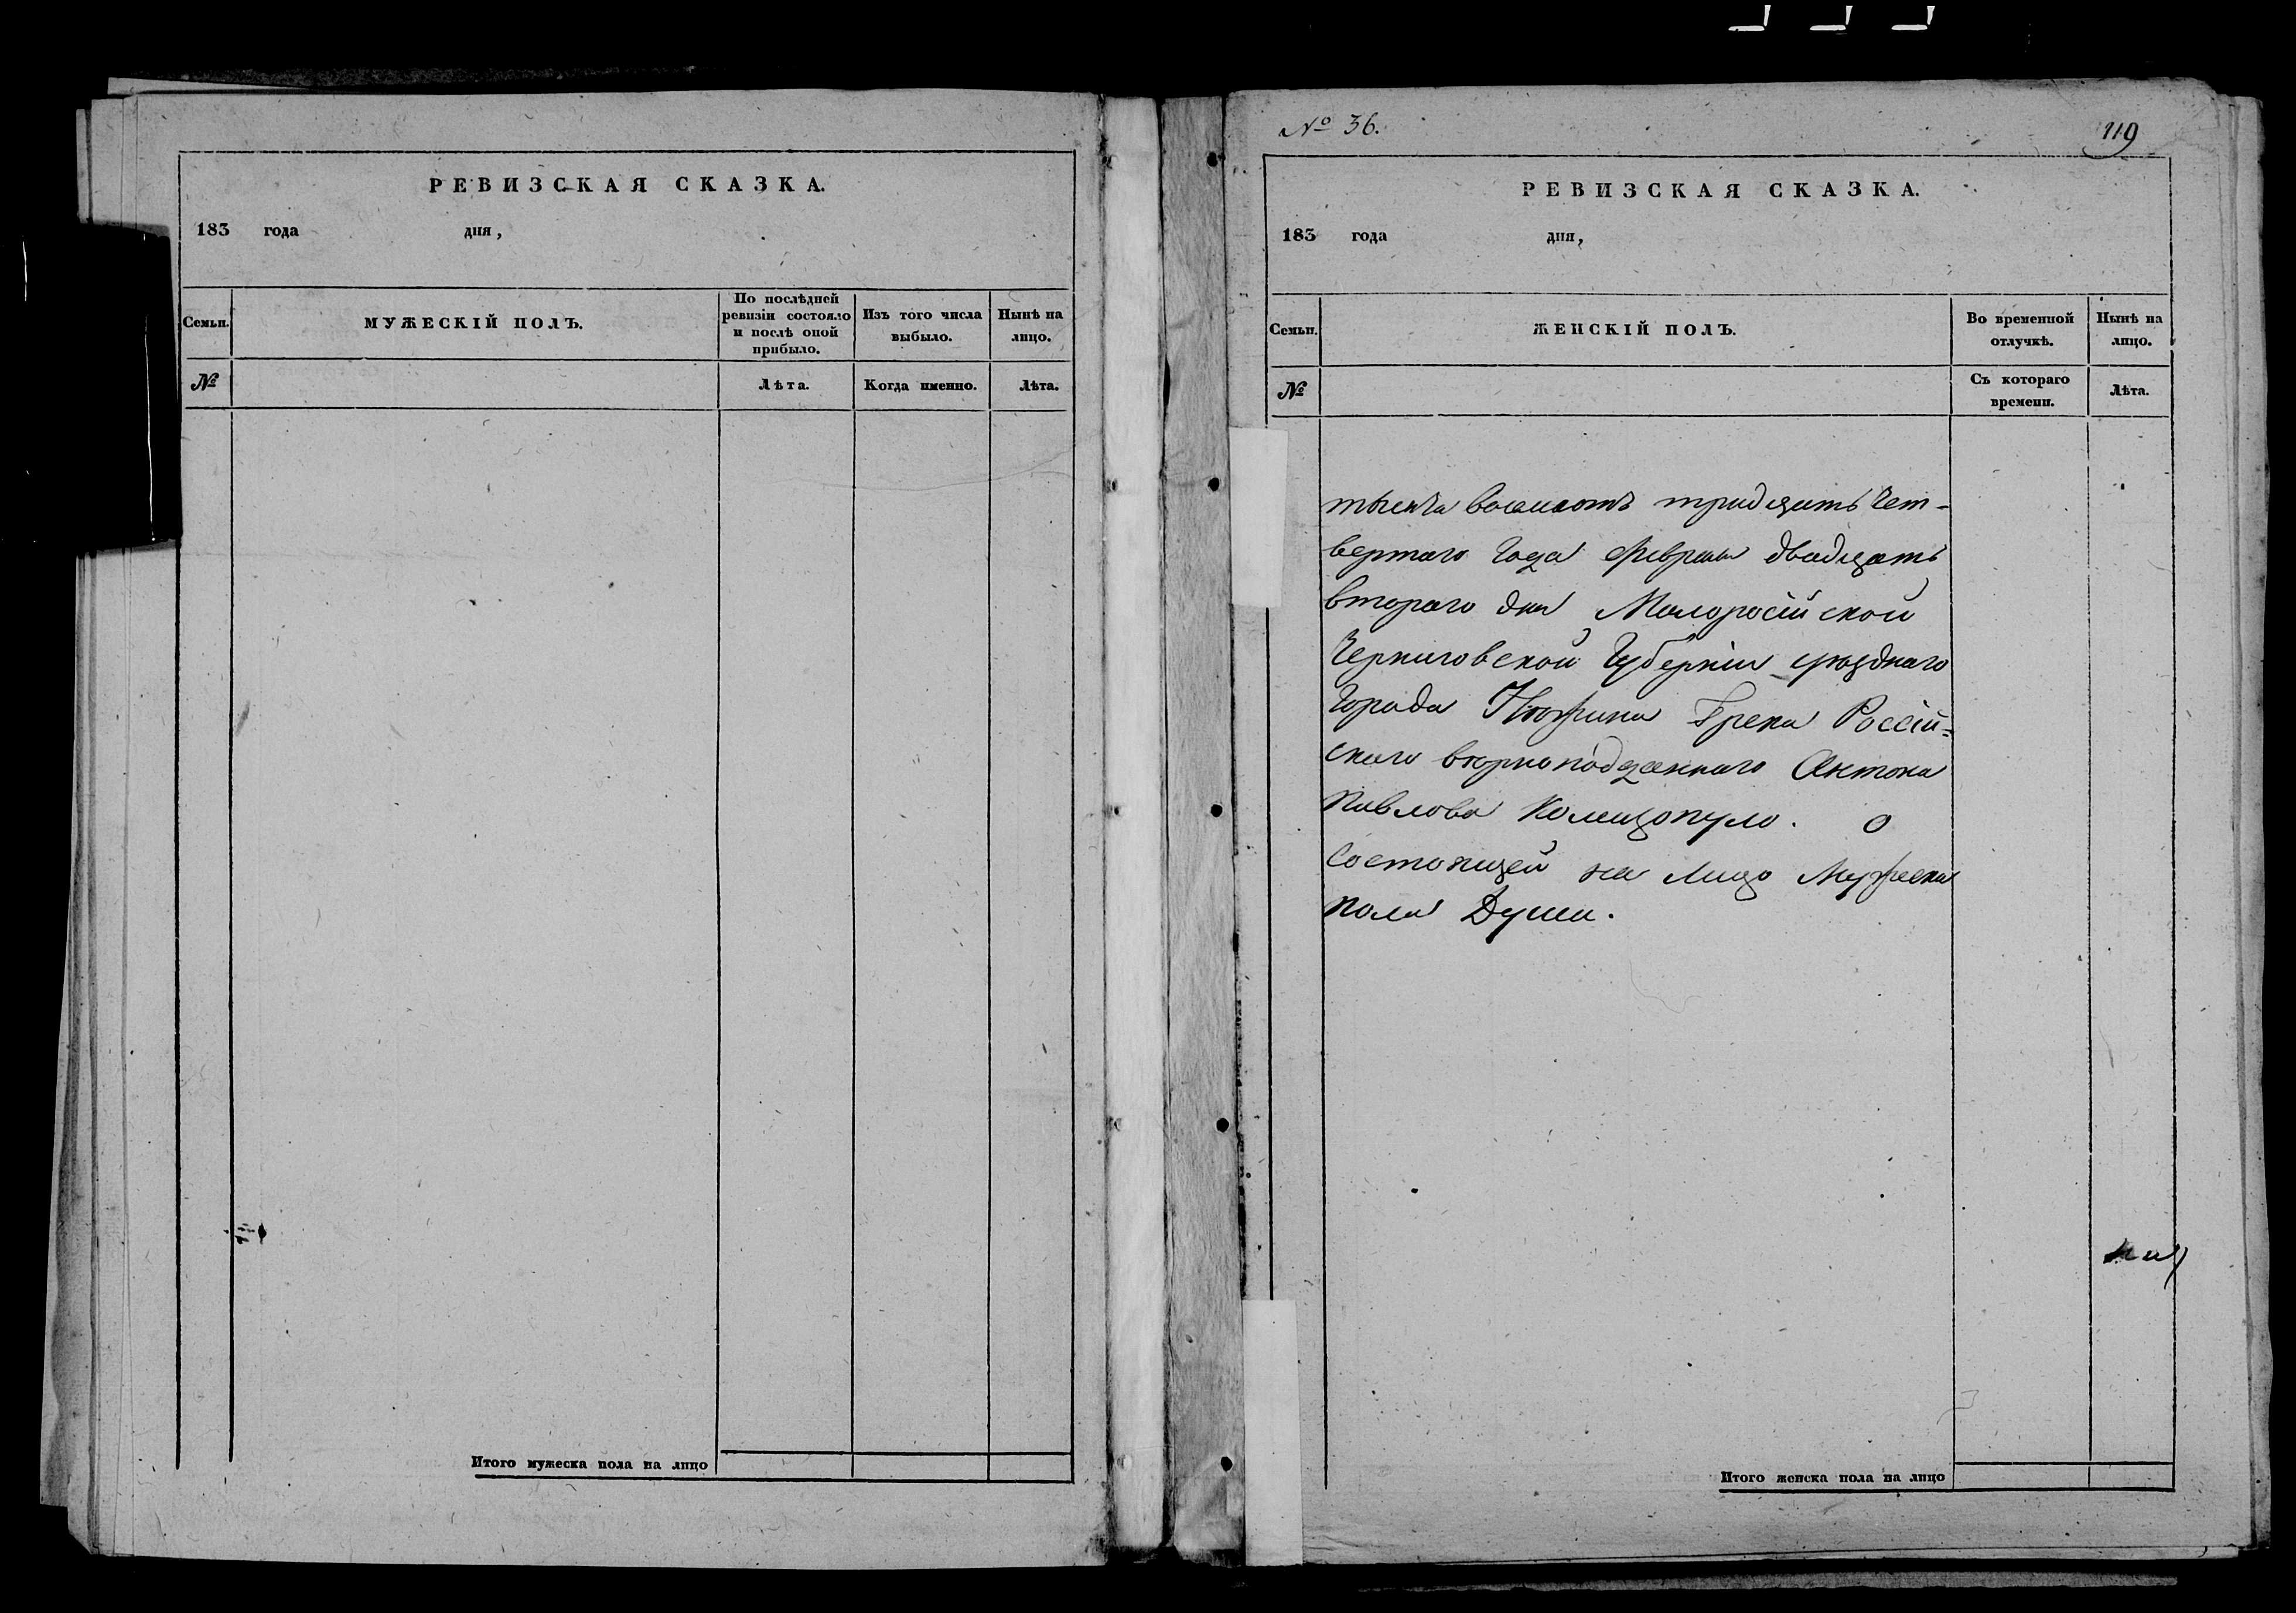 РЕВИЗСКАЯ СКАЗКА.
183 года дня,
Семьи.
МУЖЕСКІЙ ПОЛЪ.
По послѣдней
ревизіи состояло
и послѣ оной
прибыло.
Изъ того числа
выбыло.
Нынѣ на
лицо.
№
Лѣта.
Когда именно.
Лѣта.
Итого мужеска пола на лицо
№ 36.
119
РЕВИЗСКАЯ СКАЗКА.
183 года дня,
Семьи.
ЖЕНСКІЙ ПОЛЪ.
Во временной
отлучкѣ.
Нынѣ на
лицо.
№
Съ котораго
времени.
Лѣта.
тысяча восемсотъ тридцать чет-
вертаго года февраля двадцать
втораго дня Малоросійской
Черниговской Губерніи уѣзднаго
города Нѣжина Грека Россій=
скаго вѣрноподданнаго Антона
Павлова Комецопуло. О
состоящей на лицо мужеска
пола Души.
Итого женска пола на лицо